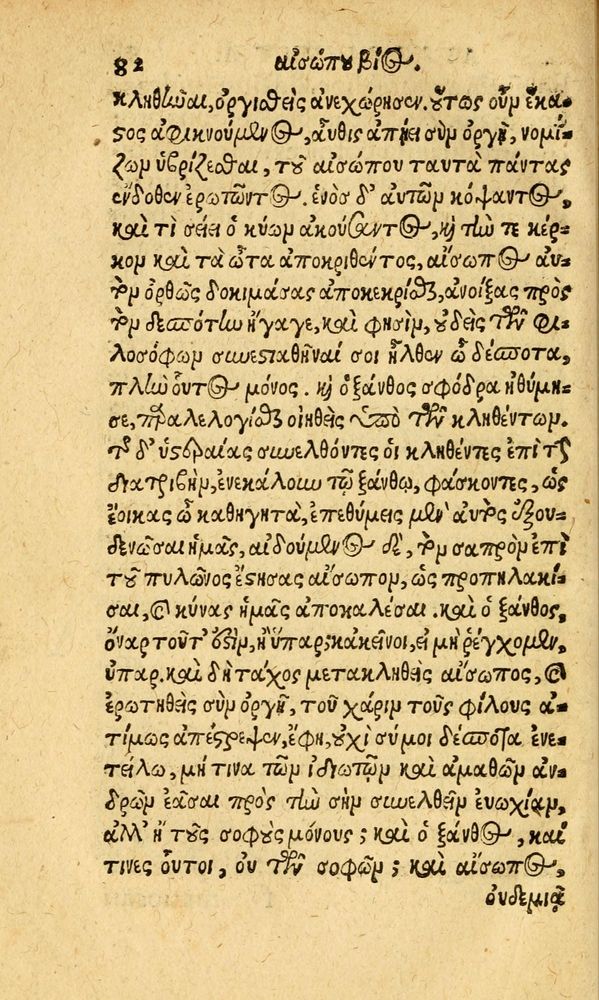 82 αἰσώπου βίος.
κληθῆναι, ὀργισθεὶς ἀνεχώρησεν. οὕτως οὖν ἕκα-
στος ἀφικνούμενος, αὖθις ἀπῄει σὺν ὀργῇ, νομί-
ζων ὑβρίζεσθαι, τοῦ αἰσώπου ταυτὰ πάντας
ἔνδοθεν ἐρωτῶντος. ἑνὸς δ' αὐτῶν κόψαντος,
καὶ τί σείει ὁ κύων ἀκούσαντος, καὶ τήν τε κέρ-
κον καὶ τὰ ὦτα ἀποκριθέντος, αἴσωπος αὐ-
τὸν ὀρθῶς δοκιμάσας ἀποκεκρίσθαι, ἀνοίξας πρὸς
τὸν δεσπότην ἤγαγε, καὶ φησὶν, οὐδεὶς τῶν φι-
λοσόφων συνεστιαθῆναί σοι ἦλθεν ὦ δέσποτα,
πλὴν οὗτος μόνος. καὶ ὁ ξάνθος σφόδρα ἠθύμη-
σε, παραλελογίσθαι οἰηθεὶς ὑπὸ τῶν κληθέντων.
τῇ δ' ὑστεραίας συνελθόντες οἱ κληθέντες ἐπὶ τὴν
διατριβὴν, ἐνεκάλουν τῷ ξάνθῳ, φάσκοντες, ὡς
ἔοικας ὦ καθηγητὰ, ἐπεθύμεις μὲν αὐτὸς ἐξου-
δενῶσαι ἡμᾶς, αἰδούμενος δὲ, τὸν σαπρὸν ἐπὶ
τοῦ πυλῶνος ἔστησας αἴσωπον, ὡς προπηλακί-
σαι, καὶ κύνας ἡμᾶς ἀποκαλέσαι. καὶ ὁ ξάνθος,
ὄναρ τοῦτ' ἐστὶν, ἢ ὕπαρ; κἀκεῖνοι, εἰ μὴ ῥέγχομεν,
ὕπαρ. καὶ δὴ τάχος μετακληθεὶς αἴσωπος, καὶ
ἐρωτηθεὶς σὺν ὀργῇ, τοῦ χάριν τοὺς φίλους ἀ-
τίμως ἀπέστρεψεν, ἔφη, οὐχὶ σύ μοι δέσποτα ἐνε-
τείλω, μή τινα τῶν ἰδιωτῶν καὶ ἀμαθῶν ἀν-
δρῶν ἐᾶσαι πρὸς τὴν σὴν συνελθεῖν εὐωχίαν,
ἀλλ' ἢ τοὺς σοφοὺς μόνους; καὶ ὁ ξάνθος, καὶ
τίνες οὗτοι, οὐ τῶν σοφῶν; καὶ αἴσωπος,
οὐδεμιᾷ